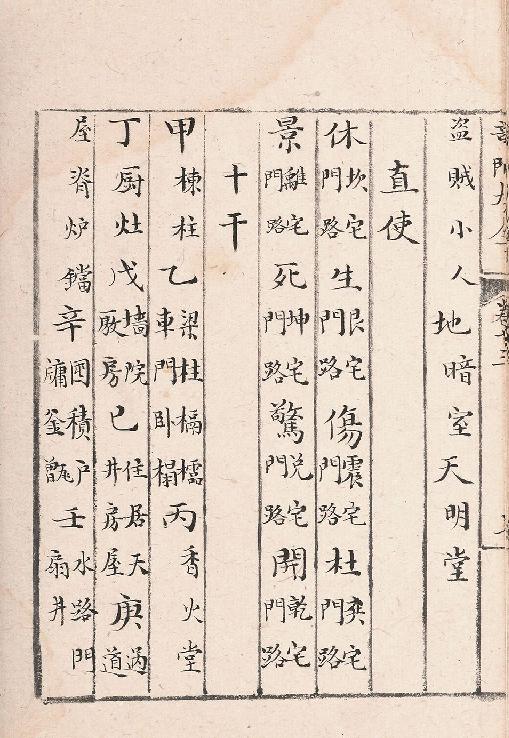 卷十三
盜賊小人地暗室天明堂
直使
休坎宅門路生艮宅門路傷震宅門路杜巽宅門路
景離宅門路死坤宅門路驚兌宅門路開乾宅門路
十干
甲棟柱乙梁柱槅檽車門卧榻丙香火堂
丁厨灶戊墻院厫房已住居天井房屋庚過道
屋脊炉鐺辛囷積户牗釜甑壬水路門扇井